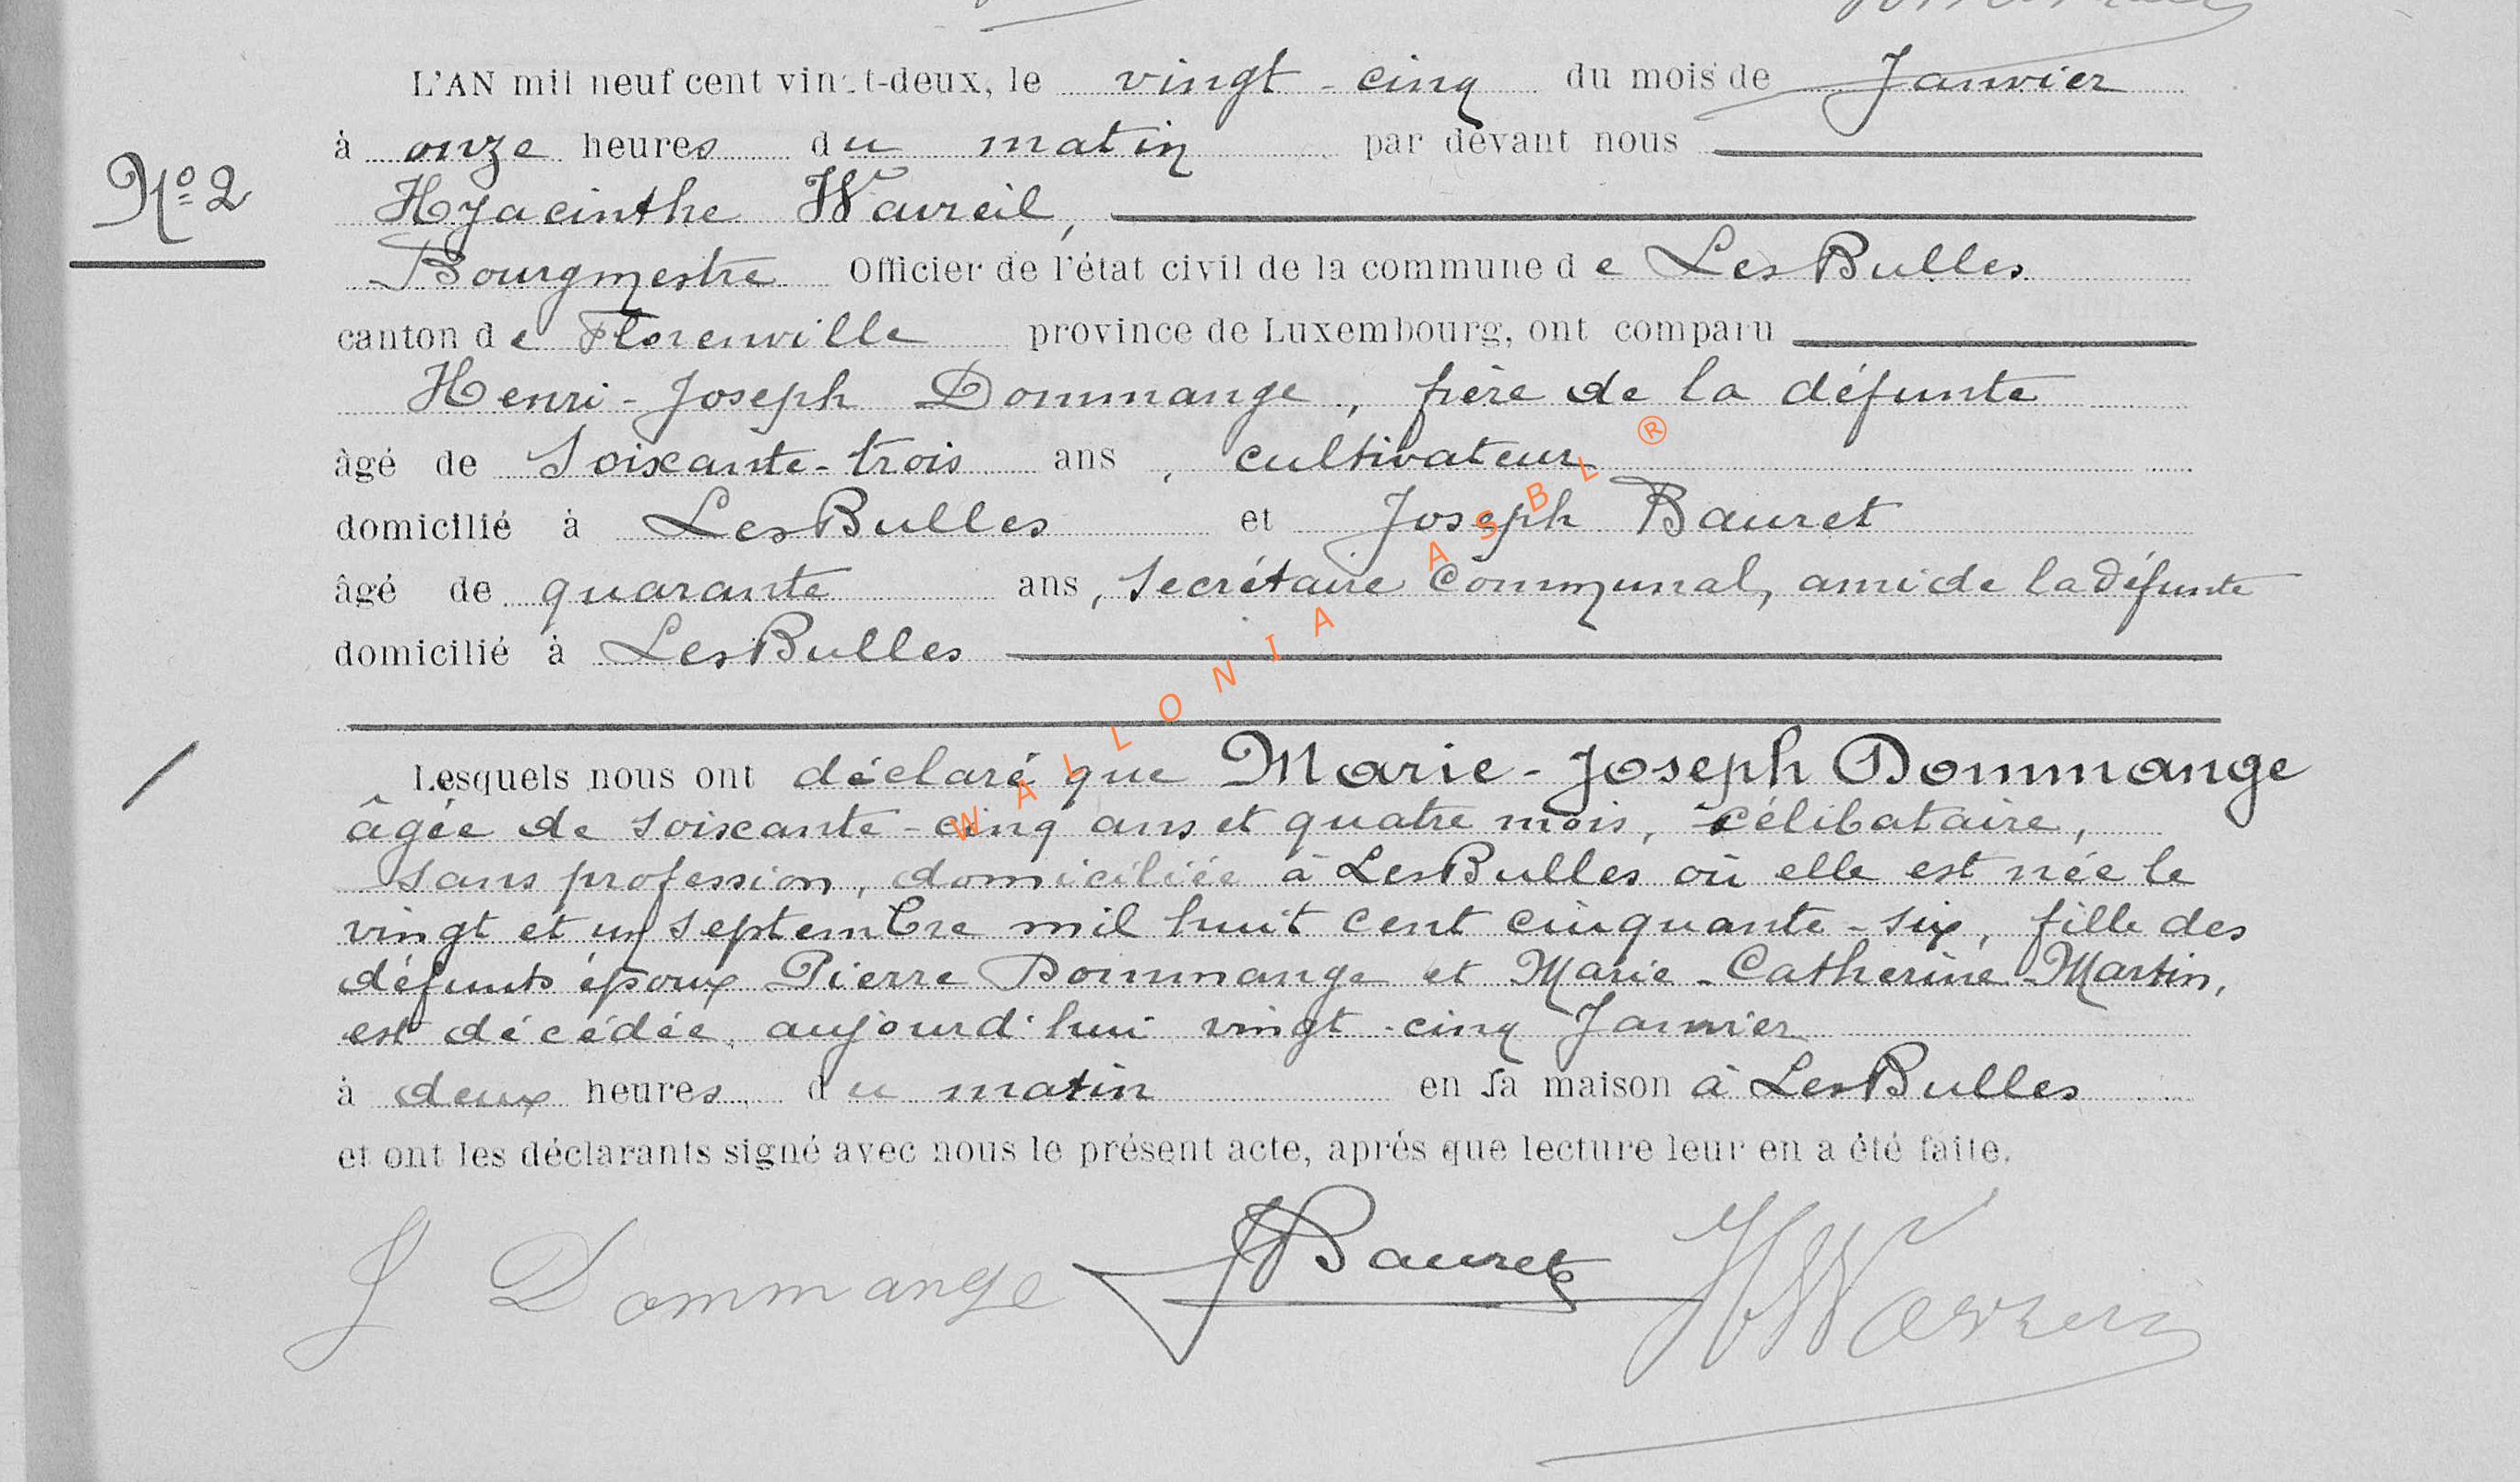 L'AN mil neuf cent vingt-deux, le vingt-cinq du mois de Janvier
à onze heures du matin par devant nous
N° 2
Hyacinthe Wavreil,
Bourgmestre Officier de l'état civil de la commune de Les Bulles
canton de Florenville province de Luxembourg, ont comparu
Henri-Joseph Dommange, frère de la défunte
âgé de Soixante-trois ans, cultivateur
domicilié à Les Bulles et Joseph Bauret
âgé de quarante ans, Secrétaire Communal, ami de la défunte
domicilié à Les Bulles
Lesquels nous ont déclaré que Marie-Joseph Dommange
âgée de soixante-cinq ans et quatre mois, célibataire,
sans profession, domiciliée à Les Bulles où elle est née le
vingt et un septembre mil huit cent cinquante-six, fille des
défunts époux Pierre Dommange et Marie-Catherine Martin,
est décédée, aujourd'hui vingt-cinq Janvier
à deux heures du matin en sa maison à Les Bulles
et ont les déclarants signé avec nous le présent acte, après que lecture leur en a été faite.
J Dommange JBauret HWavreil
WALLONIA ASBL ®